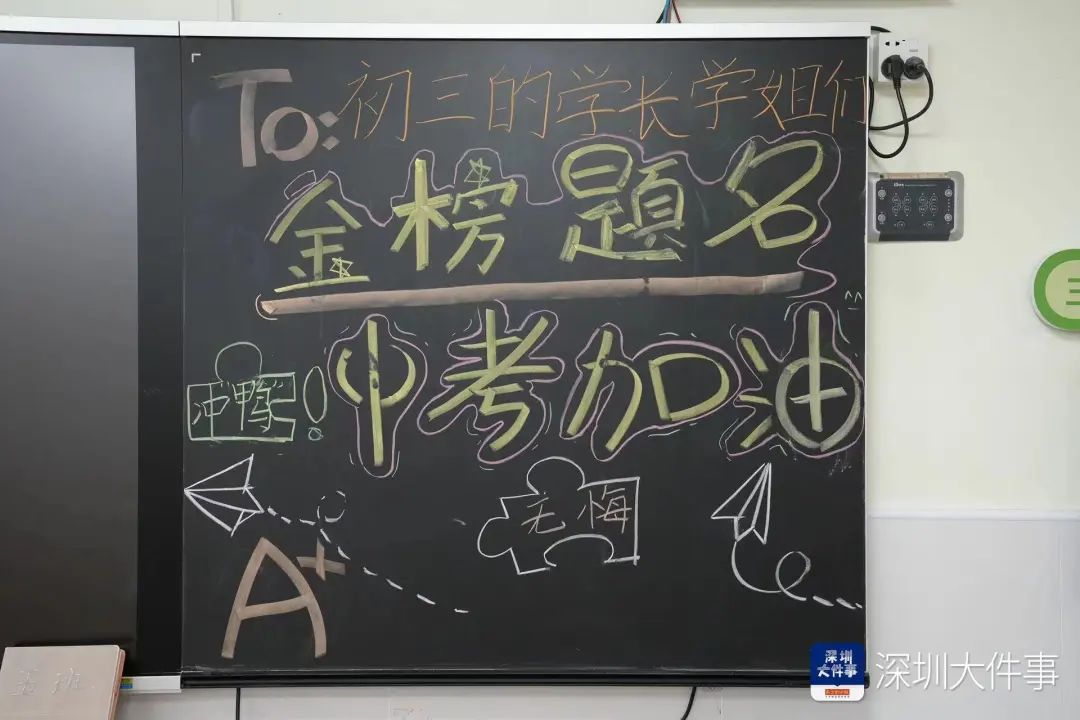 To:初三的学长学姐们
金榜题名
中考加油
冲鸭!
无悔
A+
深圳
大件事
深圳大件事